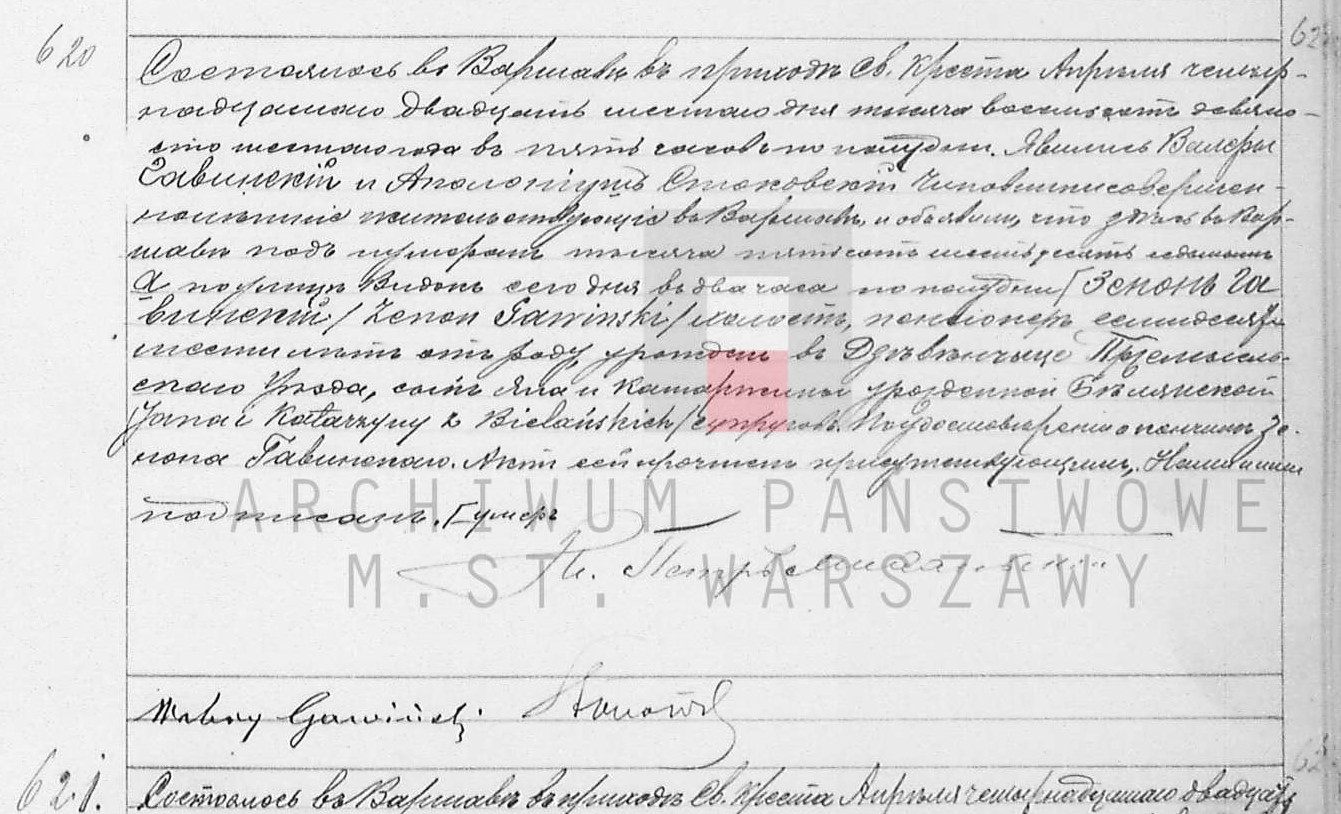 620
Состоялось въ Варшавѣ въ приходѣ Св. Креста Апрѣля четыр-
надцатаго двадцать шестаго дня тысяча восемьсотъ девяно-
сто шестаго года въ пять часовъ по полудни. Явились Валеры
Гавинскій и Стоковскій совершен-
нолѣтніе жительствующіе въ Варшавѣ, и объявили, что здѣсь въ Вар-
шавѣ подъ нумеромъ тысяча пятьсотъ шестьдесятъ седьмымъ
а по улицѣ Видокъ сего дня въ два часа по полудни [Зенонъ Га
винскій /Zenon Gawinski/ холостъ, пенсіонеръ семидесяти
шести лѣтъ отъ роду, урожденъ въ Пржемысль-
скаго Уѣзда, сынъ Яна и Катаржины урожденной Бѣлянской
/Jana i Katarzyny z Bielańskich/ супруговъ. По удостовѣреніи о кончинѣ Зе-
нона Гавинскаго. Актъ сей прочтенъ присутствующимъ, Нами ими
подписанъ. [умеръ
Кс. Петръ
Walery Gawiński
621. Состоялось въ Варшавѣ въ приходѣ Св. Креста Апрѣля четырнадцатаго двадцать
ARCHIWUM PAŃSTWOWE
M. ST. WARSZAWY